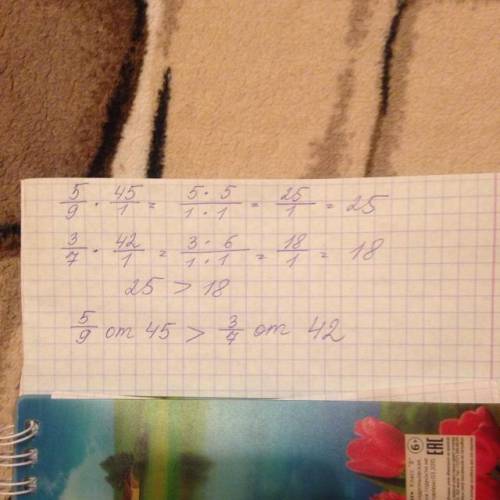 5/9 · 45/1 = 5 · 5/1 · 1 = 25/1 = 25
3/7 · 42/1 = 3 · 6/1 · 1 = 18/1 = 18
25 > 18
5/9 от 45 > 3/7 от 42
6+
EAC